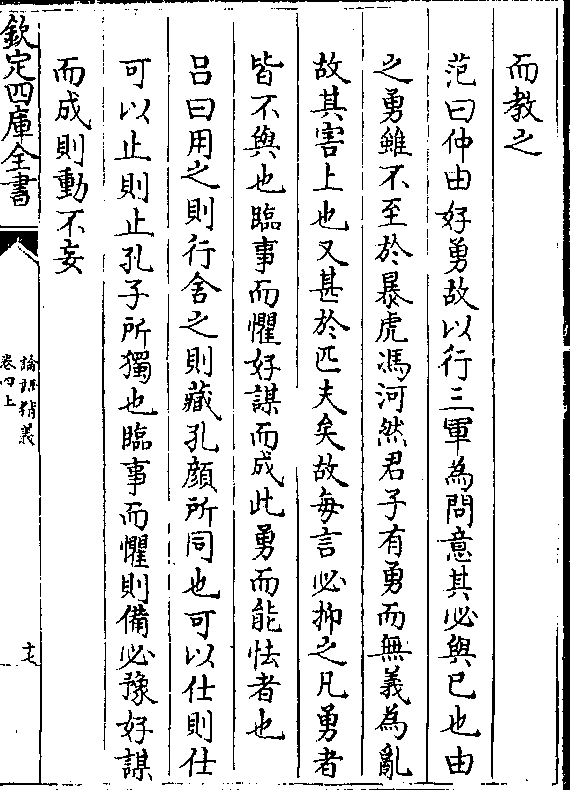 而教之
范曰仲由好勇故以行三軍為問意其必與已也由
之勇雖不至於暴虎馮河然君子有勇而無義為亂
故其害上也又甚於匹夫矣故每言必抑之凡勇者
皆不與也臨事而懼好謀而成此勇而能怯者也
吕曰用之則行舍之則藏孔顔所同也可以仕則仕
可以止則止孔子所獨也臨事而懼則備必豫好謀
而成則動不妄
欽定四庫全書
論語精義
卷四上
十七